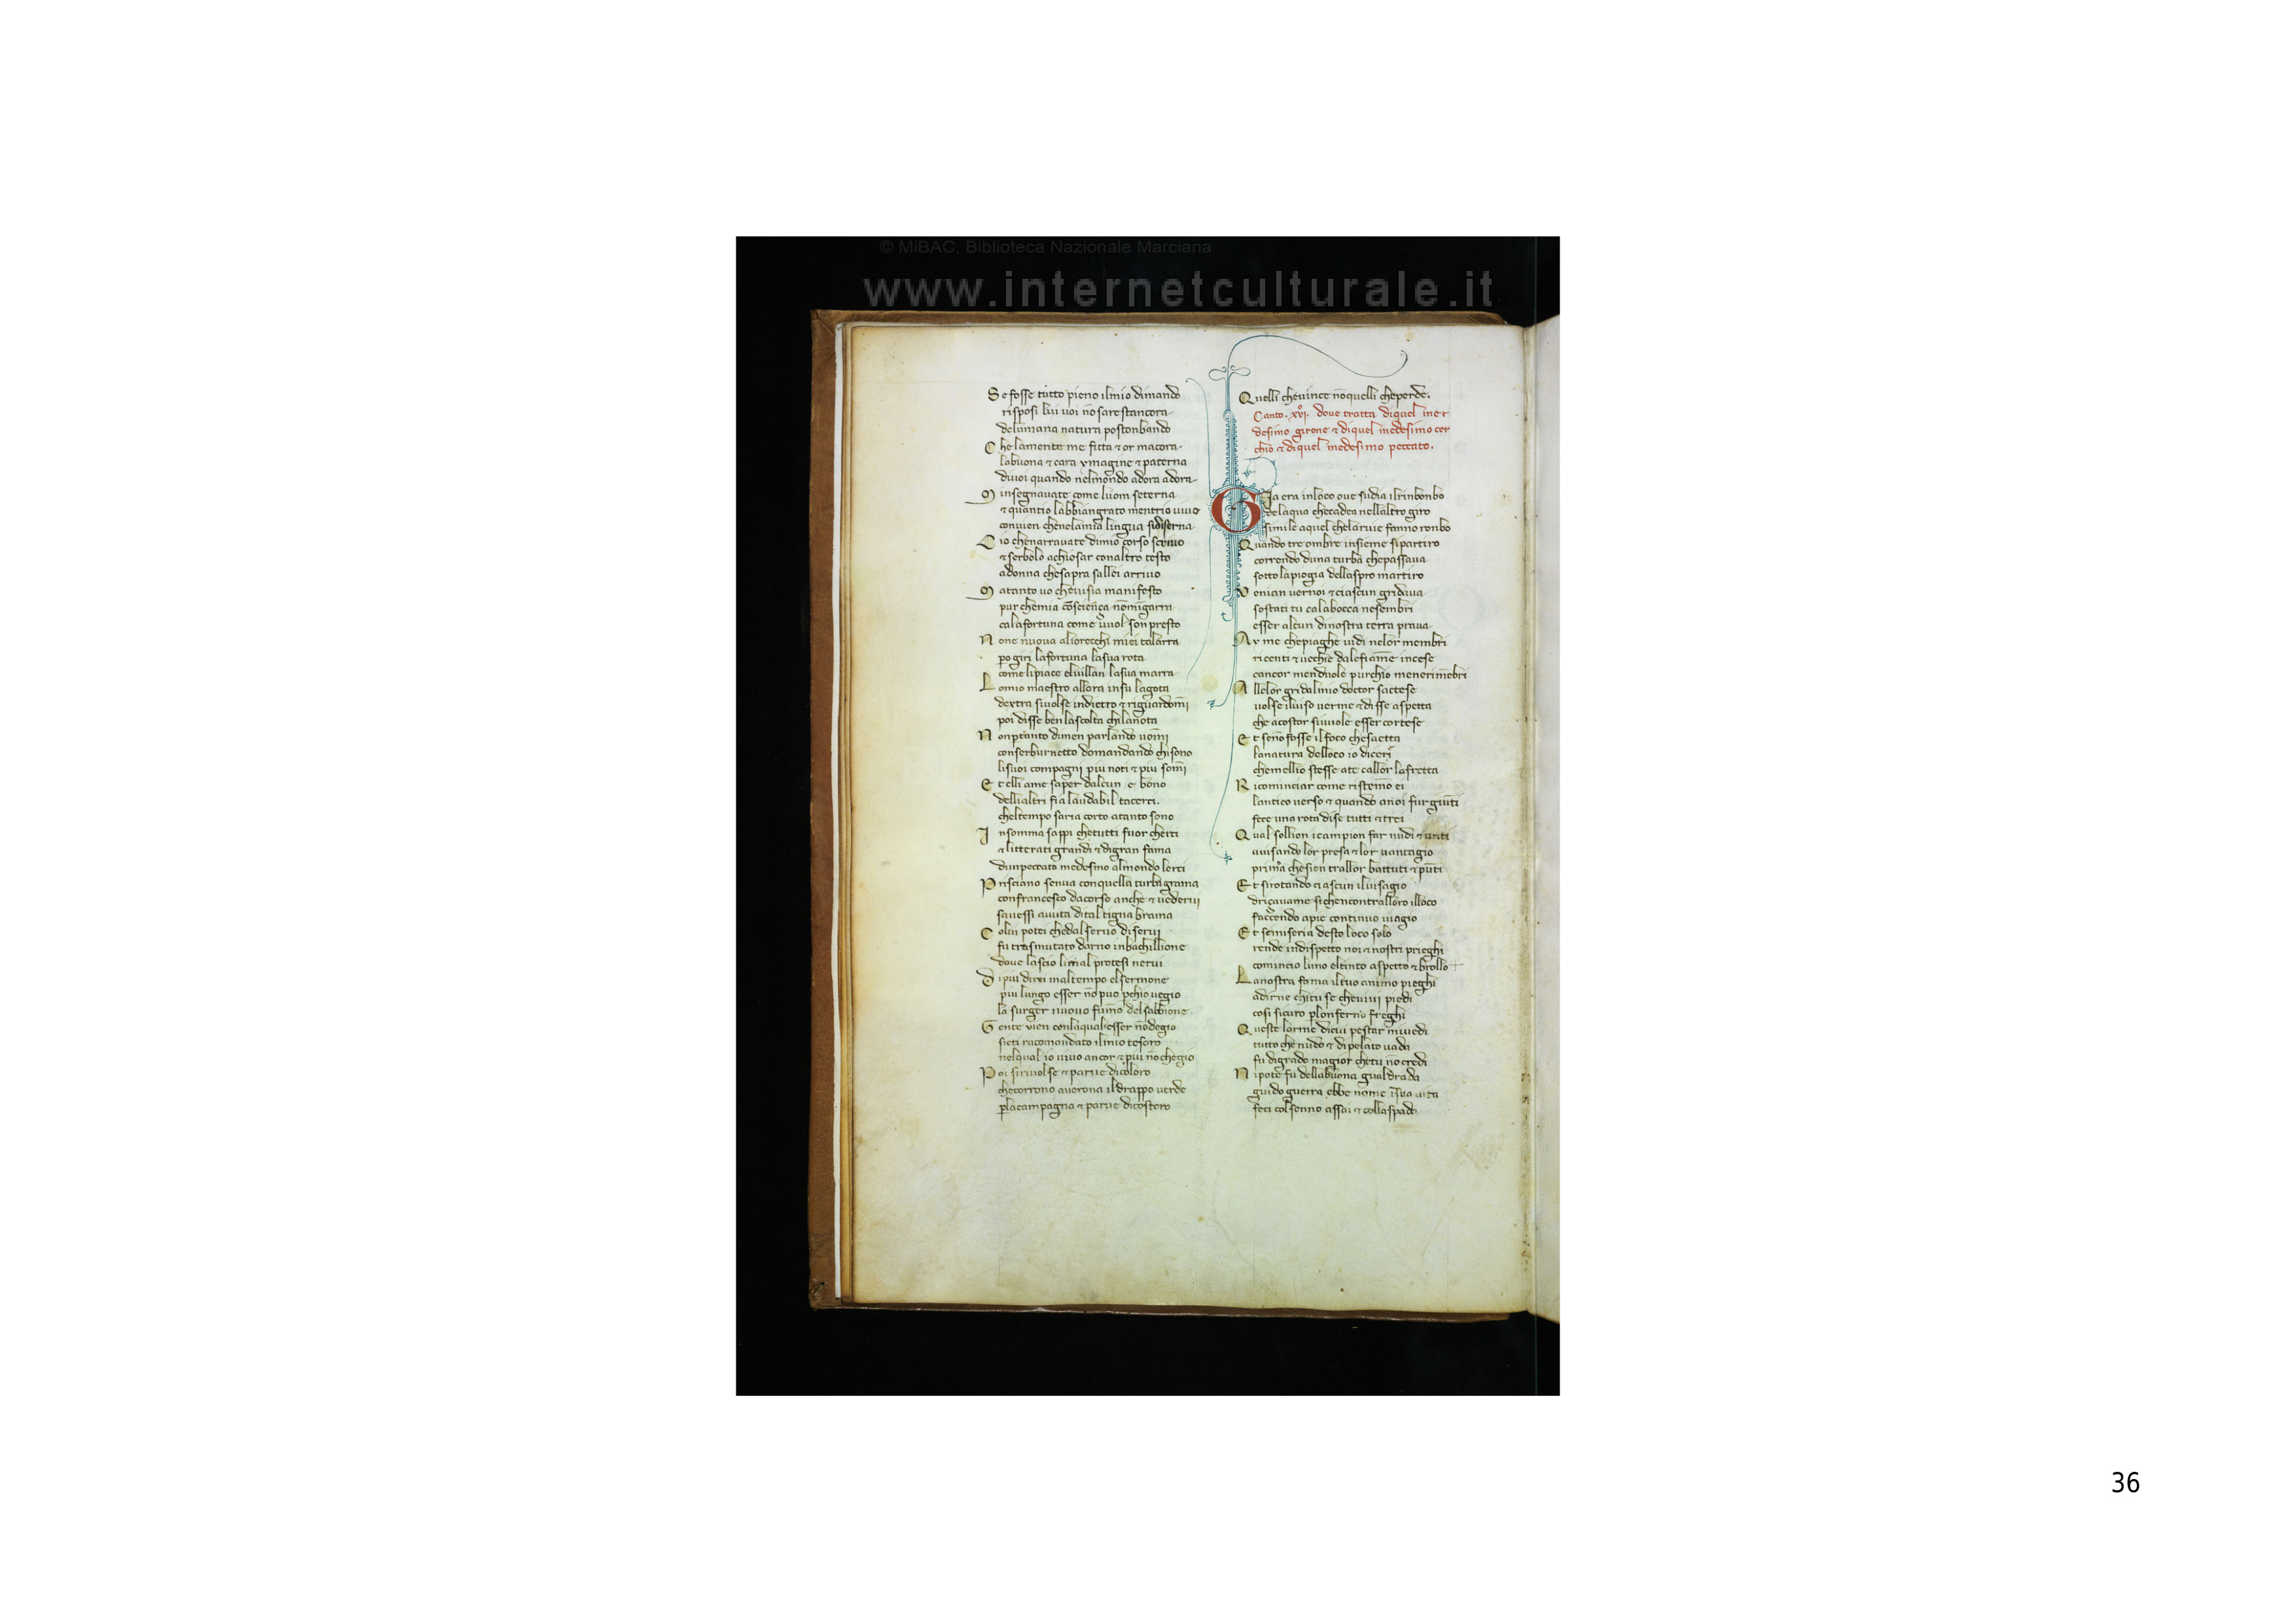 © MiBAC, Biblioteca Nazionale Marciana
www.internetculturale.it
Se fosse tutto pieno ilmio dimando
risposi lui uoi nō sarestancora
delumana natura postonbando
Che lamente me fitta ⁊ or macora
labuona ⁊ cara ymagine ⁊ paterna
diuoi quando nelmondo adora adora
Minsegnauate come luom seterna
⁊ quantio labbiangrato mentrio uiuo
conuien chenelamia lingua sidiserna
Cio chenarrauate dimio corso scriuo
⁊ serbolo achiosar conaltro testo
adonna chesapra sallei arriuo
Matanto uo cheuisia manifesto
pur chemia cōsciença nōmigarra
calafortuna come uuol son presto
None nuoua aliorecchi miei talarra
po giri lafortuna lasua rota
come lipiace eluillan lasua marra
Lomio maestro allora insu lagota
dextra siuolse indietro ⁊ riguardomi
poi disse ben lascolta chilanota
Non ptanto dimen parlando uomi
conserburnetto domandando chisono
lisuoi compagni piu noti ⁊ piu somi
Et elli ame saper dalcun e bono
dellialtri fia laudabil tacerci.
cheltempo saria corto atanto sono
Insomma sappi chetutti fuor cherci
⁊ litterati grandi ⁊ digran fama
dunpeccato medesmo almondo lerci
Prisciano senua conquella turba grama
confrancesco dacorso anche ⁊ uederui
sauessi auuta dital tigna brama
Colui potei chedal seruo diserui
fu trasmutato darno inbachillione
doue lascio li mal protesi nerui
Dipiu direi maltempo elsermone
piu lungo esser nō puo pchio uegio
la surger nuouo fumo del sabbione.
Gente uien conlaqual esser nōdegio
sieti racomandato ilmio tesoro
nelqual io uiuo ancor ⁊ piu nō chegio
Poi siriuolse ⁊ parue dicoloro
checorrono auerona ildrappo uerde
placampagna ⁊ parue dicostoro
Quelli cheuince nōquelli cheperde.
Canto. xvi. doue tratta diquel me⁊
desimo girone ⁊ diquel medesimo cer
chio ⁊ diquel medesimo peccato.
Gia era inloco oue sudia ilrinbonbo
delaqua checadea nellaltro giro
simile aquel chelarnie fanno ronbo
Quando tre ombre insieme sipartiro
correndo duna turba chepassaua
sotto lapiogia dellaspro martiro
Venian uernoi ⁊ ciascun gridaua
sostati tu calabocca nesembri
esser alcun dinostra terra praua
Ay me chepiaghe uidi nelor membri
ricenti ⁊ uecchie dalefiāme incese
cancor menduole purchio menerimēbri
Allelor gridalmio doctor sactese
uolse iluiso uerme ⁊ disse aspetta
che acostor siuuole esser cortese
Et senō fosse il foco chesaetta
lanatura delloco io dicerı
chemellio stesse ate callor lafretta
Ricominciar come ristemo ei
lantico uerso ⁊ quando anoi fur giunti
fece una rota dise tutti ⁊ trei
Qual sollion i campion far nudi ⁊ unti
auisando lor presa ⁊ lor uantagio
prima chesien trallor battuti ⁊ punti
Et sirotando ciascun iluisagio
driçauame sichencontralloro illoco
faccendo apie continuo uiagio
Et semiseria desto loco solo
rende indispetto noi ⁊ nostri prieghi
comincio luno eltinto aspetto ⁊ brollo
Lanostra fama iltuo animo pieghi
adirne chitu se cheuiui piedi
cosi sicuro plonferno freghi
Queste lorme dicui pestar miuedi
tutto che nudo ⁊ dipelato uada
fu digrado magior chetu nō credi
Nipote fu dellabuona gualdrada
guido guerra ebbe nome īsua uita
feci colsenno assai ⁊ collaspada
36